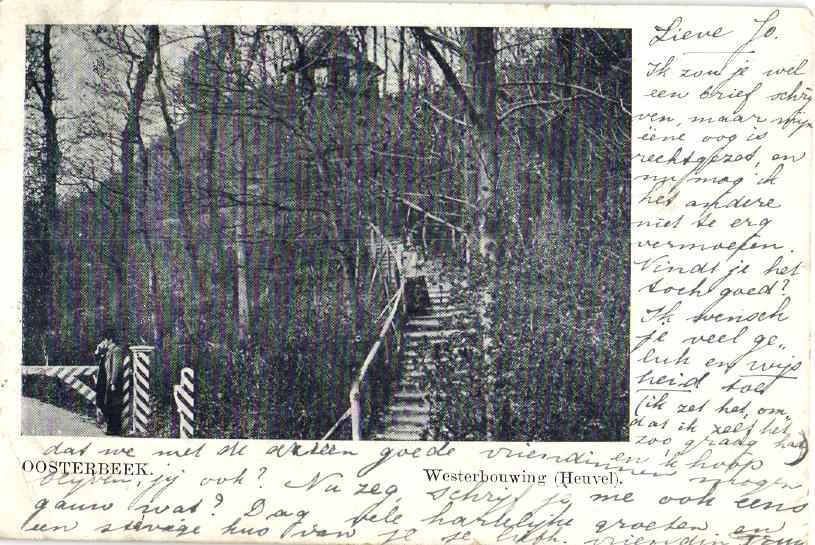 Lieve Jo.
Ik zou je wel
een brief schrij
ven, maar mijn
ééne oog is
rechtgezet, en
nu mag ik
het andere
niet te erg
vermoeien.
Vindt je het
toch goed?
Ik wensch
je veel ge„
luk en wijs
heid toe
(ik zet het, om„
dat ik zelf het
zóó graag had)
dat we met de drieën goede vriendinnen
en ik hoop mogen
OOSTERBEEK.
Westerbouwing (Heuvel).
blijven, jij ook? Nu zeg, schrijf je me ook eens
gauw wat? Dag vele hartelijke groeten en
een stevige kus van je je liefh. vriendin